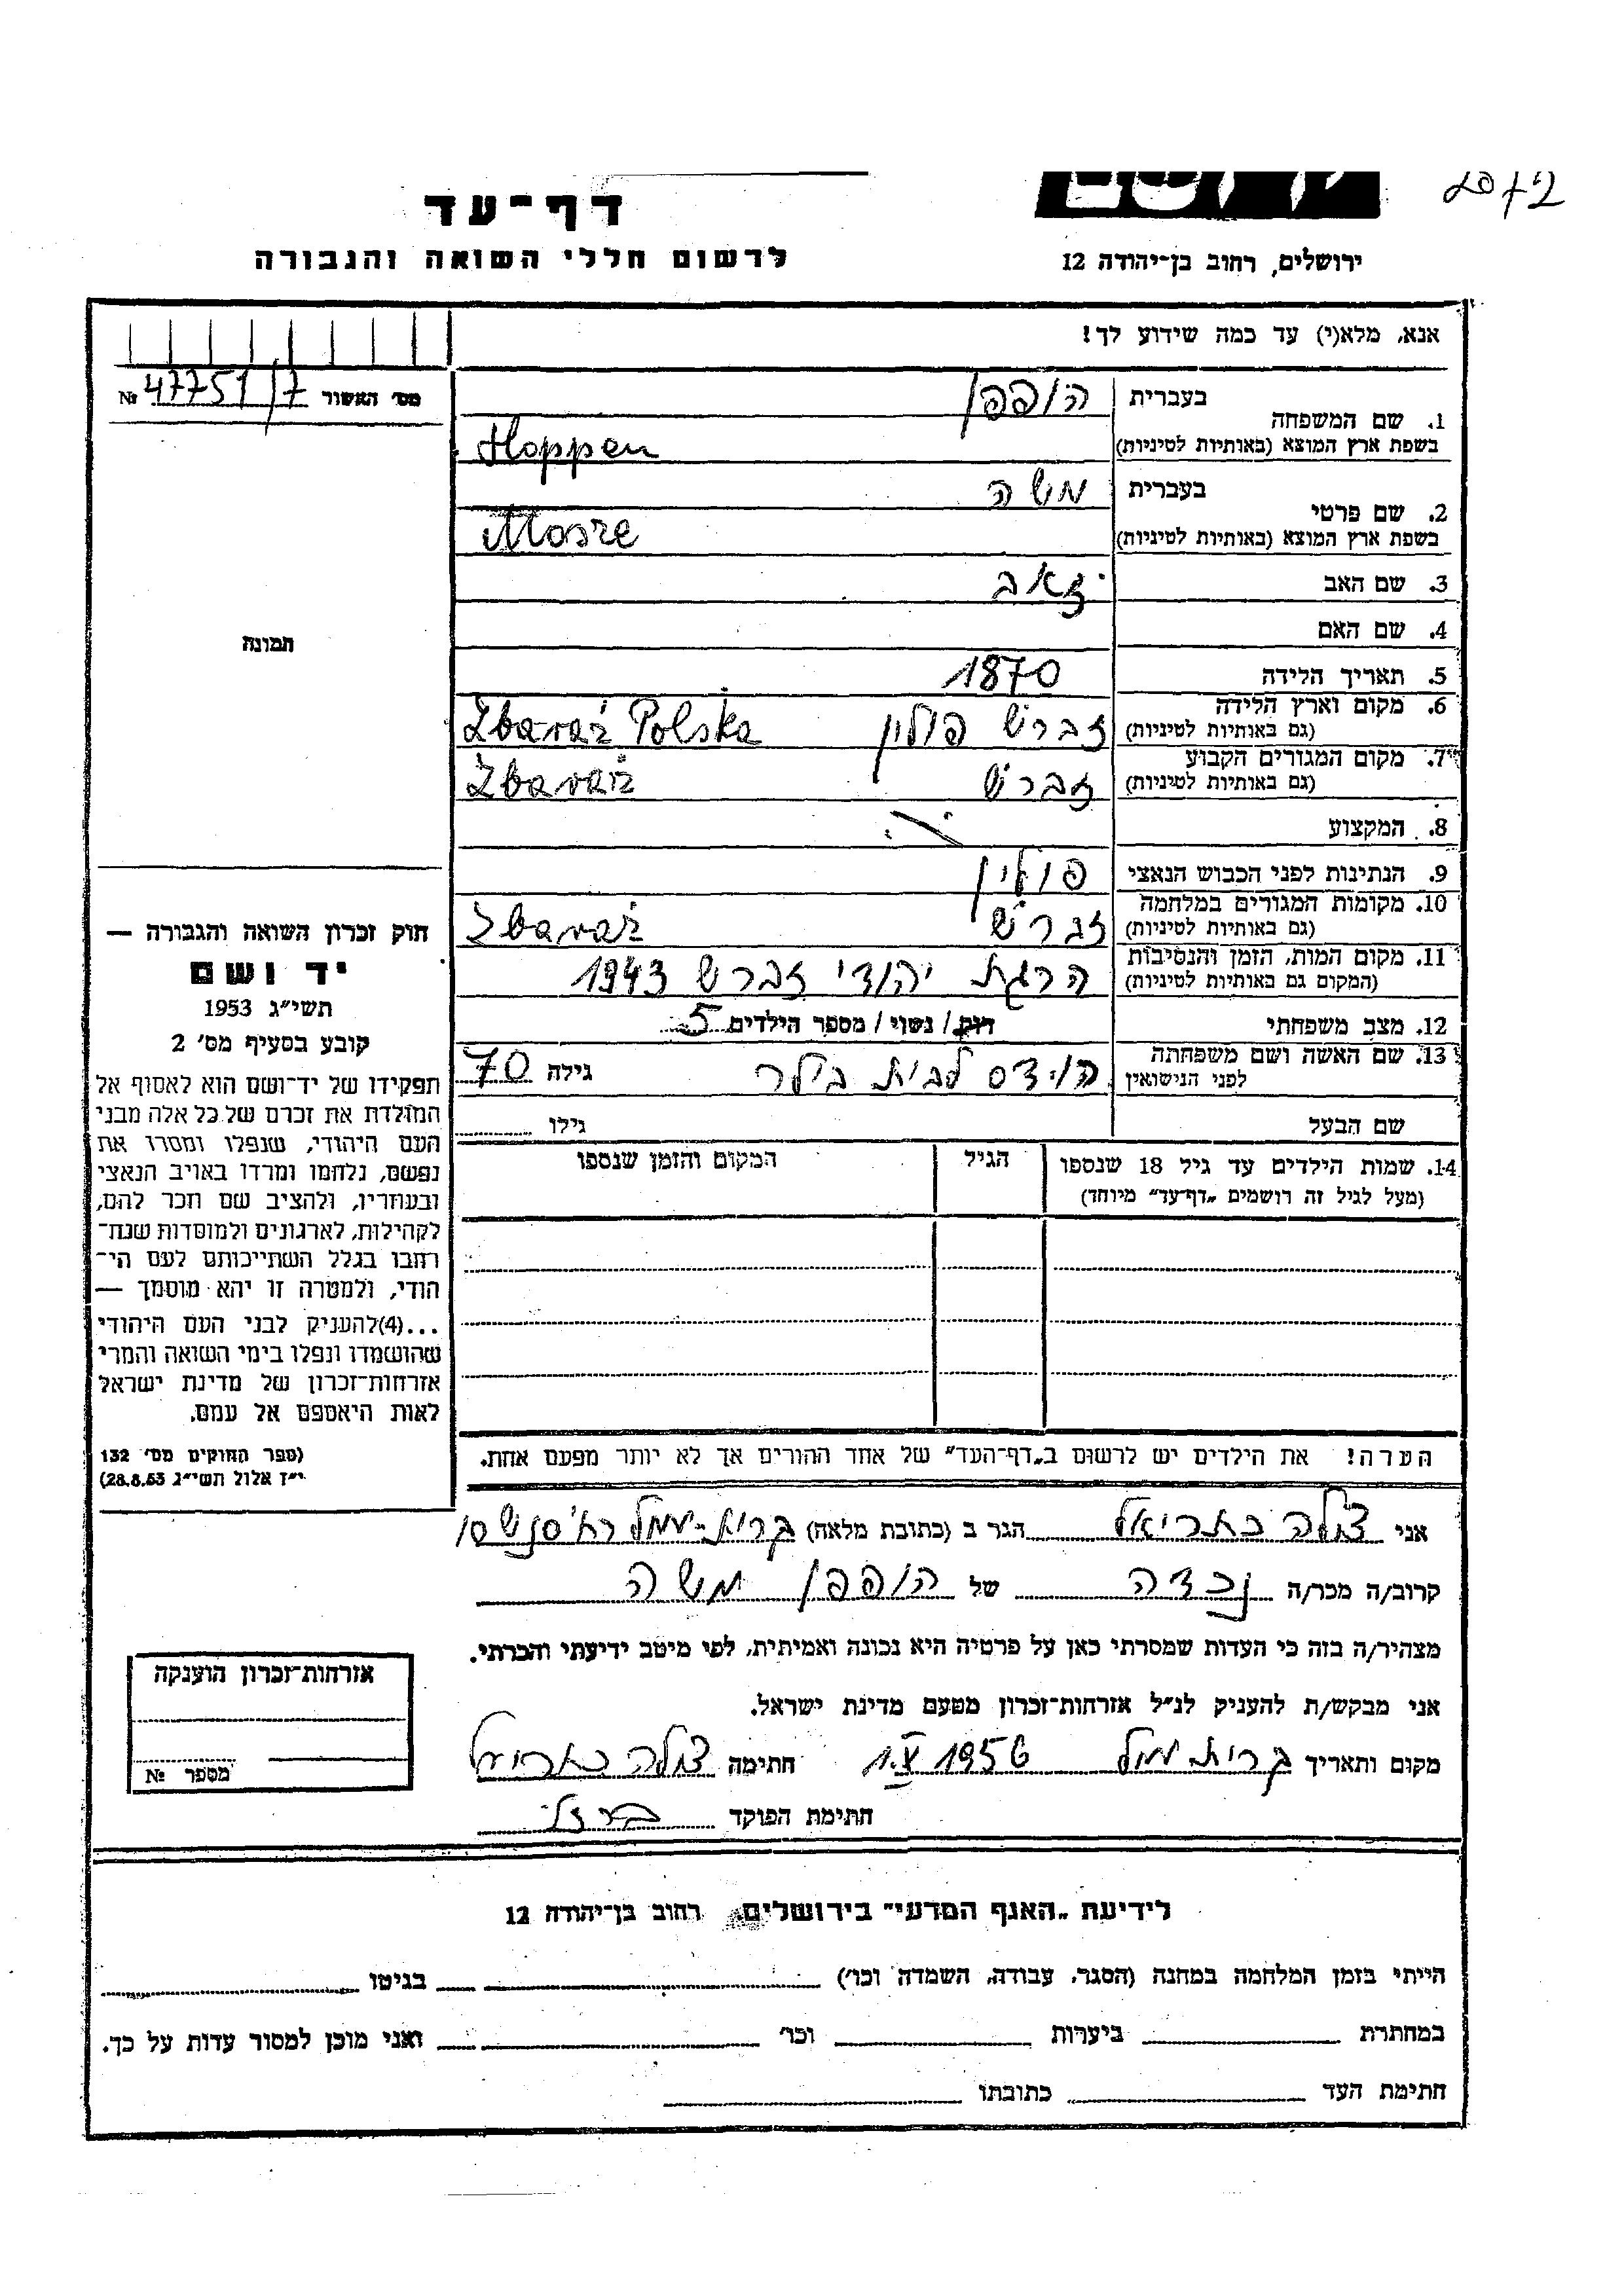 דף-עד
לרשום חללי השואה והגבורה
ירושלים, רחוב בן-יהודה 12
אנא, מלא(י) עד כמה שידוע לך!
מס' האשור 47751/7 №
1. שם המשפחה
בעברית הופפן
בשפת ארץ המוצא (באותיות לטיניות) Hoppen
2. שם פרטי
בעברית משה
בשפת ארץ המוצא (באותיות לטיניות) Mosze
3. שם האב זאב
4. שם האם
5. תאריך הלידה 1870
6. מקום וארץ הלידה זברש פולין Zbaraż Polska
(גם באותיות לטיניות)
7. מקום המגורים הקבוע זברש Zbaraż
(גם באותיות לטיניות)
8. המקצוע
9. הנתינות לפני הכבוש הנאצי פולין
10. מקומות המגורים במלחמה זברש Zbaraż
(גם באותיות לטיניות)
11. מקום המות, הזמן והנסיבות הרגת יהודי זברש 1943
(המקום גם באותיות לטיניות)
12. מצב משפחתי רוק/ נשוי/ מספר הילדים 5
13. שם האשה ושם משפחתה לפני הנישואין לבית גילה 70
שם הבעל גילו
14. שמות הילדים עד גיל 18 שנספו הגיל המקום והזמן שנספו
(מעל לגיל זה רושמים „דף-עד" מיוחד)
תמונה
חוק זכרון השואה והגבורה —
יד ושם
תשי"ג 1953
קובע בסעיף מס' 2
תפקידו של יד-ושם הוא לאסוף אל
המולדת את זכרם של כל אלה מבני
העם היהודי, שנפלו ומסרו את
נפשם, נלחמו ומרדו באויב הנאצי
ובעוזריו, ולהציב שם וזכר להם,
לקהילות, לארגונים ולמוסדות שנח-
רבו בגלל השתייכותם לעם הי-
הודי, ולמטרה זו יהא מוסמך —
...(4)להעניק לבני העם היהודי
שהושמדו ונפלו בימי השואה והמרי
אזרחות-זכרון של מדינת ישראל
לאות היאספם אל עמם.
(ספר החוקים מס' 132
י"ז אלול תשי"ג 28.8.53)
הערה! את הילדים יש לרשום ב„דף-העד" של אחד ההורים אך לא יותר מפעם אחת.
אני צילה הגר ב (כתובת מלאה)
קרוב/ה מכר/ה נכדה של הופפן משה
מצהיר/ה בזה כי העדות שמסרתי כאן על פרטיה היא נכונה ואמיתית, לפי מיטב ידיעתי והכרתי.
אני מבקש/ת להעניק לנ"ל אזרחות-זכרון מטעם מדינת ישראל.
מקום ותאריך קרית 1.V 1956 חתימה צילה
חתימת הפוקד
אזרחות-זכרון הוענקה
מספר №
לידיעת „האגף המדעי" בירושלים, רחוב בן-יהודה 12
הייתי בזמן המלחמה במחנה (הסגר, עבודה, השמדה וכו') בגיטו
במחתרת ביערות וכו' ואני מוכן למסור עדות על כך.
חתימת העד כתובתו